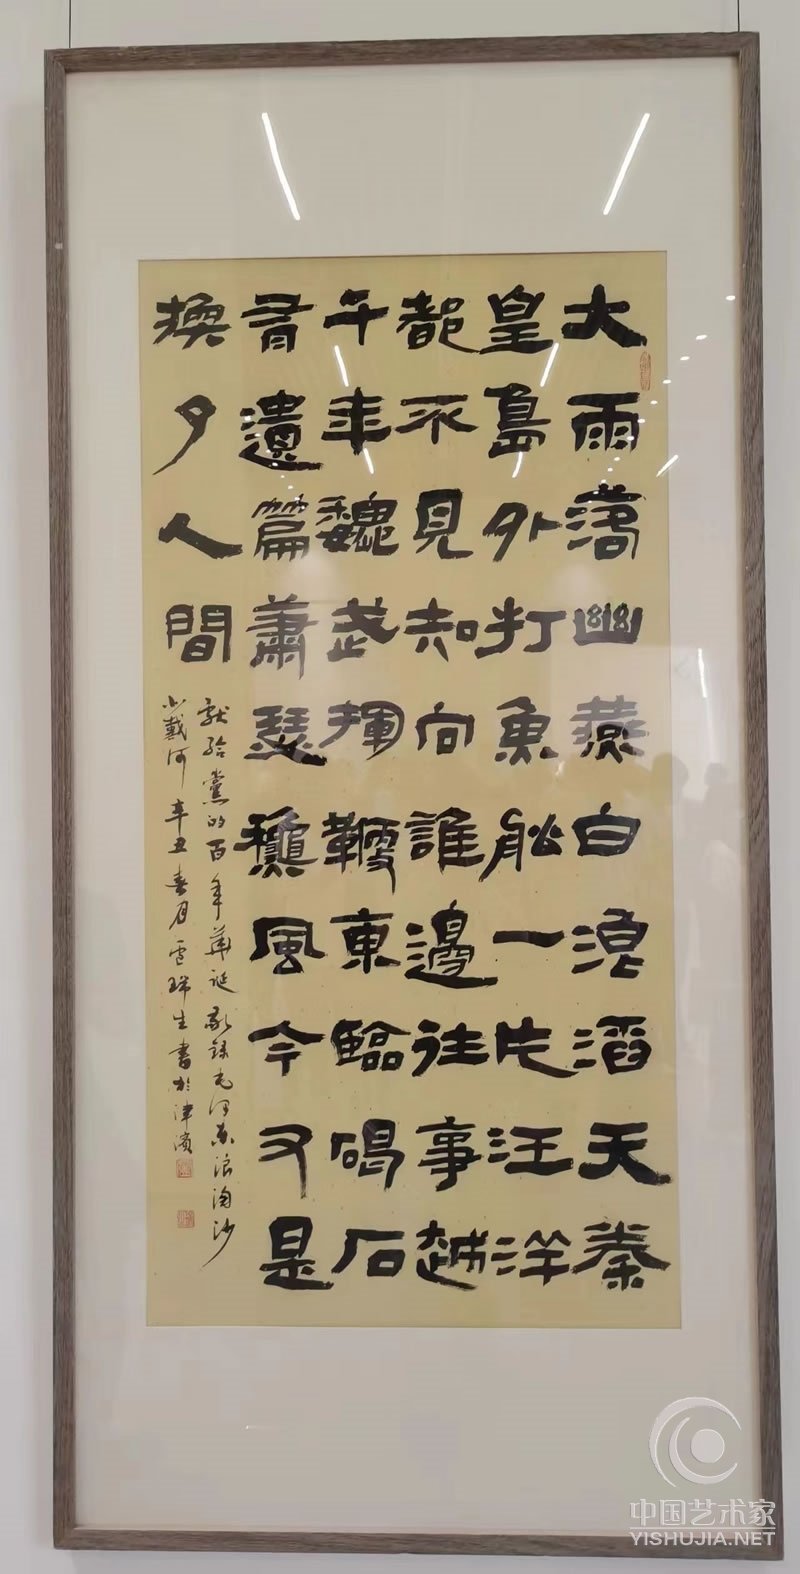 大雨落幽燕白浪滔天秦
皇島外打魚船一片汪洋
都不見知向誰邊往事越
千年魏武揮鞭東臨碣石
有遺篇蕭瑟龝風今又是
換了人間
獻給黨的百年華誕敬錄毛澤東浪淘沙
北戴河辛丑春月瑞生書於津濱
中国艺术家
YISHUJIA.NET